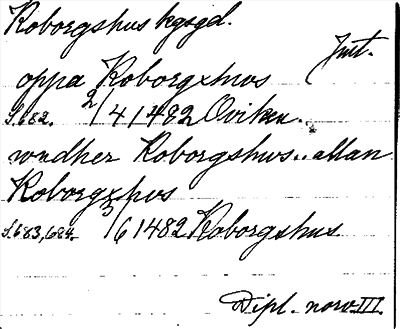 Roborgshus kgsgd.
Jmt.
oppa Roborgxhws
S.682. 2/4 1482 Oviken.
wndher Roborgshws.. allan
Roborgxhws
S.683,684. 3/6 1482 Roborgshus
Dipl. norv. III.